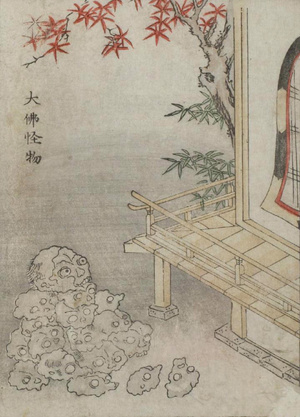 大佛怪物